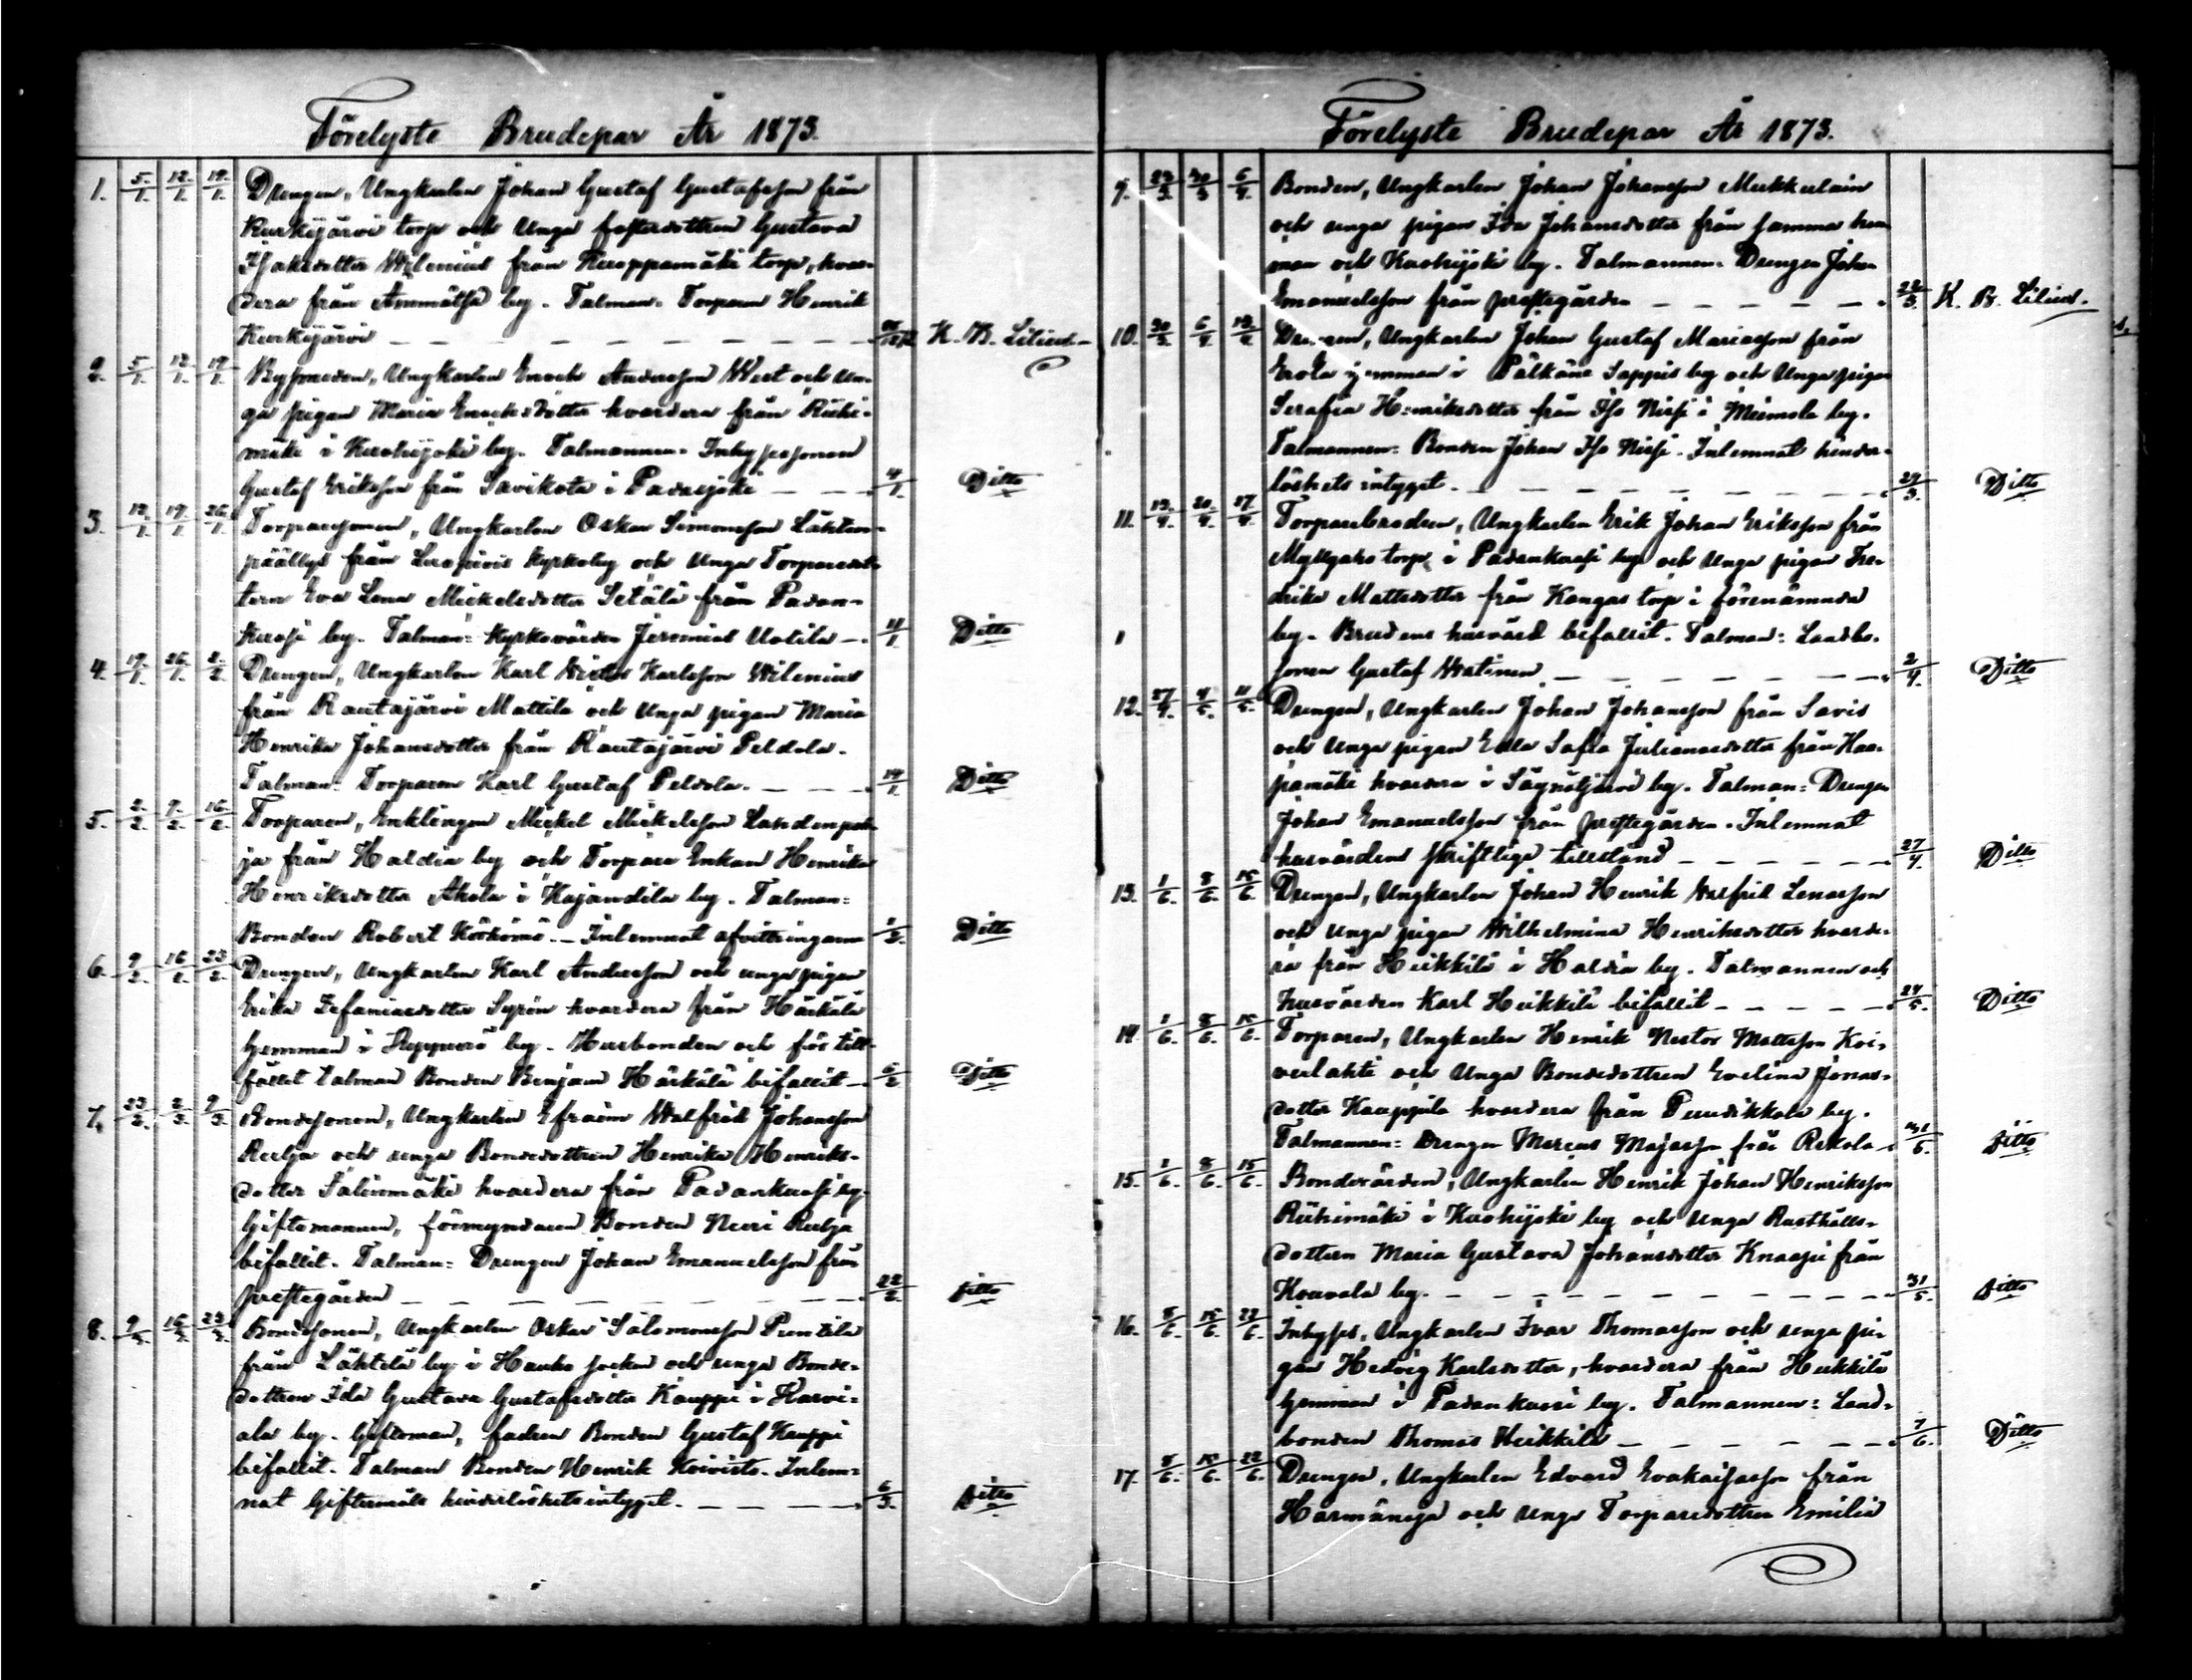 Förelyste Brudepar År 1873.
1. 5/1. 12/1. 19/1. Drengen, Ungkarlen Johan Gustaf Gustafsson från
Kurkijärvi torp och Unga fosterdottren Gustava
Isaksdotter Wilenius från Kuoppamäki torp, hvar-
dera från Ammätsä by. Talman: Torparen Henrik
Kurkijärvi K. B. Lilius.
2. 5/1. 12/1. 19/1. Bysmeden, Ungkarlen Enoch Andersson West och Un-
ga pigan Maria Enochsdotter hvardera från Riihi-
mäki i Kuohijoki by. Talmannen: Inhysessonen
Gustaf Eriksson från Savikota i Padasjoki 4/1. Ditto
3. 12/1. 19/1. 26/1. Torparesonen, Ungkarlen Oskar Simonsson Lähteen-
päällys från Luopiois Kyrkoby och Unga Torparedot-
tern Eva Lena Mickelsdotter Setälä från Padan-
kuosi by. Talman: Kyrkovärden Jeremias Uotila 11/1. Ditto
4. 19/1. 26/1. 2/2. Drengen, Ungkarlen Karl Victor Karlsson Wilenius
från Rautajärvi Mattila och Unga pigan Maria
Henrika Johansdotter från Rautajärvi Peldola.
Talman: Torparen Karl Gustaf Peldola. 19/1. Ditto
5. 2/2. 9/2. 16/2. Torparen, Enklingen Mickel Mickelsson
ja från Haldia by och Torpare Enkan Henrika
Henriksdotter Ahola i Kajandila by. Talman:
Bonden Robert Körkömö. Inlemnat afvittringarne 1/2. Ditto
6. 9/2. 16/2. 23/2. Drengen, Ungkarlen Karl Andersson och unga pigan
Erika Zefaniasdotter Syrén hvardera från Härkälä
hemman i by. Husbonden och för till-
fället talman Bonden Benjam Härkälä bifallit 6/2. Ditto
7. 23/2. 2/3. 9/3. Bondesonen, Ungkarlen Efraim Walfrid Johansson
Reelja och unga Bondedottren Henrika Henriks-
dotter Salinmäki hvardera från Padankuosi by.
Giftomannen, förmyndaren Bonden Reelja
bifallit. Talman: Drengen Johan Emanuelsson från
prestegården 22/2. Ditto
8. 9/3. 16/3. 23/3. Bondesonen, Ungkarlen Oskar Salomonsson Puntila
från Lähtelä by i Hauho socken och unga Bonde-
dottren Ida Gustava Gustafsdotter Kauppi i Karvi-
ala by. Giftoman, fadren Bonden Gustaf Kauppi
bifallit. Talman Bonden Henrik Koivisto. Inlem-
nat Giftermåls hinderlöshetsintyget. 6/3. Ditto
Förelyste Brudepar År 1873.
9. 23/3. 30/3. 6/4. Bonden, Ungkarlen Johan Johansson Mukkulain
och unga pigan Ida Johansdotter från samma hem-
man och Kuohijoki by. Talmannen: Drengen Johan
Emanuelsson från prestegården 22/3. K. B. Lilius.
10. 30/3. 6/4. 13/4. Drengen, Ungkarlen Johan Gustaf Mariasson från
Erola hemman i Pälkäne Sappis by och Unga pigan
Serafia Henriksdotter från Iso Nissi i Miemola by.
Talmannen: Bonden Johan Iso Nissi. Inlemnat hinder-
löshets intyget. 29/3. Ditto
11. 13/4. 20/4. 27/4. Torparebrodren, Ungkarlen Erik Johan Eriksson från
Myllykarstorp i Padankuosi by och Unga pigan Fre-
drika Mattsdotter från Kangas torp i förenämnda
by. Brudens husvärd bifallit. Talman: Landbo-
sonen Gustaf 2/4. Ditto
12. 27/4. 4/5. 11/5. Drengen, Ungkarlen Johan Johansson från Savis
och Unga pigan Eva Sofia Juliansdotter från Haa-
pamäki hvardera i by. Talman: Drengen
Johan Emanuelsson från prestegården. Inlemnat
husvärdens skriftliga tillstånd 27/4. Ditto
13. 1/6. 8/6. 15/6. Drengen, Ungkarlen Johan Henrik Walfrid Lenasson
och unga pigan Wilhelmina Henriksdotter hvarde-
ra från Heikkilä i Haldia by. Talmannen och
husvärden Karl Heikkilä bifallit 24/5. Ditto
14. 1/6. 8/6. 15/6. Torparen, Ungkarlen Henrik Nestor Mattsson Koi-
verlahti och Unga Bondedottren Evelina Jonas-
dotter Kauppila hvardera från Puutikkala by.
Talmannen: Drengen Marcus Majasson från Rekola 31/5. Ditto
15. 1/6. 8/6. 15/6. Bondevärden, Ungkarlen Henrik Johan Henriksson
Riihimäki i Kuohijoki by och Unga Rusthålls-
dottern Maria Gustava Johansdotter Knaapi från
Kouvala by. 31/5. Ditto
16. 8/6. 15/6. 22/6. Inhyses, Ungkarlen Ivar Thomasson och unga pi-
gan Hedvig Karlsdotter, hvardera från Heikkilä
hemman i Padankuosi by. Talmannen: Land-
bonden Thomas Heikkilä 7/6. Ditto
17. 8/6. 15/6. 22/6. Drengen, Ungkarlen Edvard Evakaisasson från
Harmänoja och Unga Torparedottren Emilia